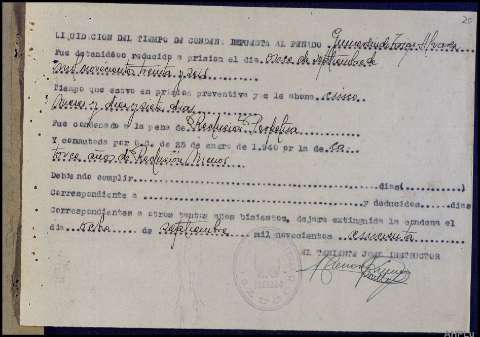 20
LIQUIDACION DEL TIEMPO DE CONDENA IMPUESTA AL PENADO
Fue detenido o reducido a prision el dia once de septiembre de
mil novecientos treinta y seis
Tiempo que estuvo en prision preventiva y se le abona cinco
meses y diez y siete dias
Fue condenado a la pena de Reclusion Perpetua
Y conmutada por O.C. de 25 de enero de 1.940 or la de
años de Reclusion Menor
Debiendo cumplir dias( )
Correspondiente a y deducidos dias
Correspondientes a otros tantos años bisiestos, dejara extinguida la condena el
dia de septiembre mil novecientos cincuenta
EL TENIENTE JUEZ INSTRUCTOR